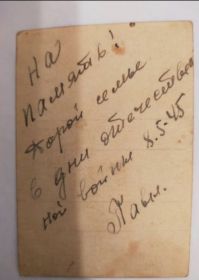 На
память!
дорой семье
в дни отечествен
ной войны 8.5-45
Павл.